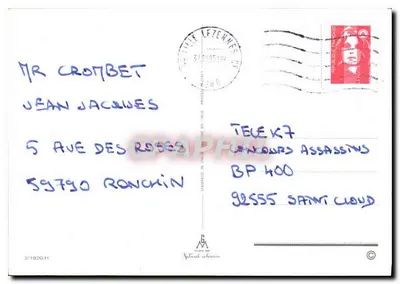 MR CROMBET
JEAN JACQUES
5 AVE DES ROSES
59790 RONCHIN
LEZENNES
TELE K7
CONCOURS ASSASSINS
BP 400
92555 SAINT CLOUD
©